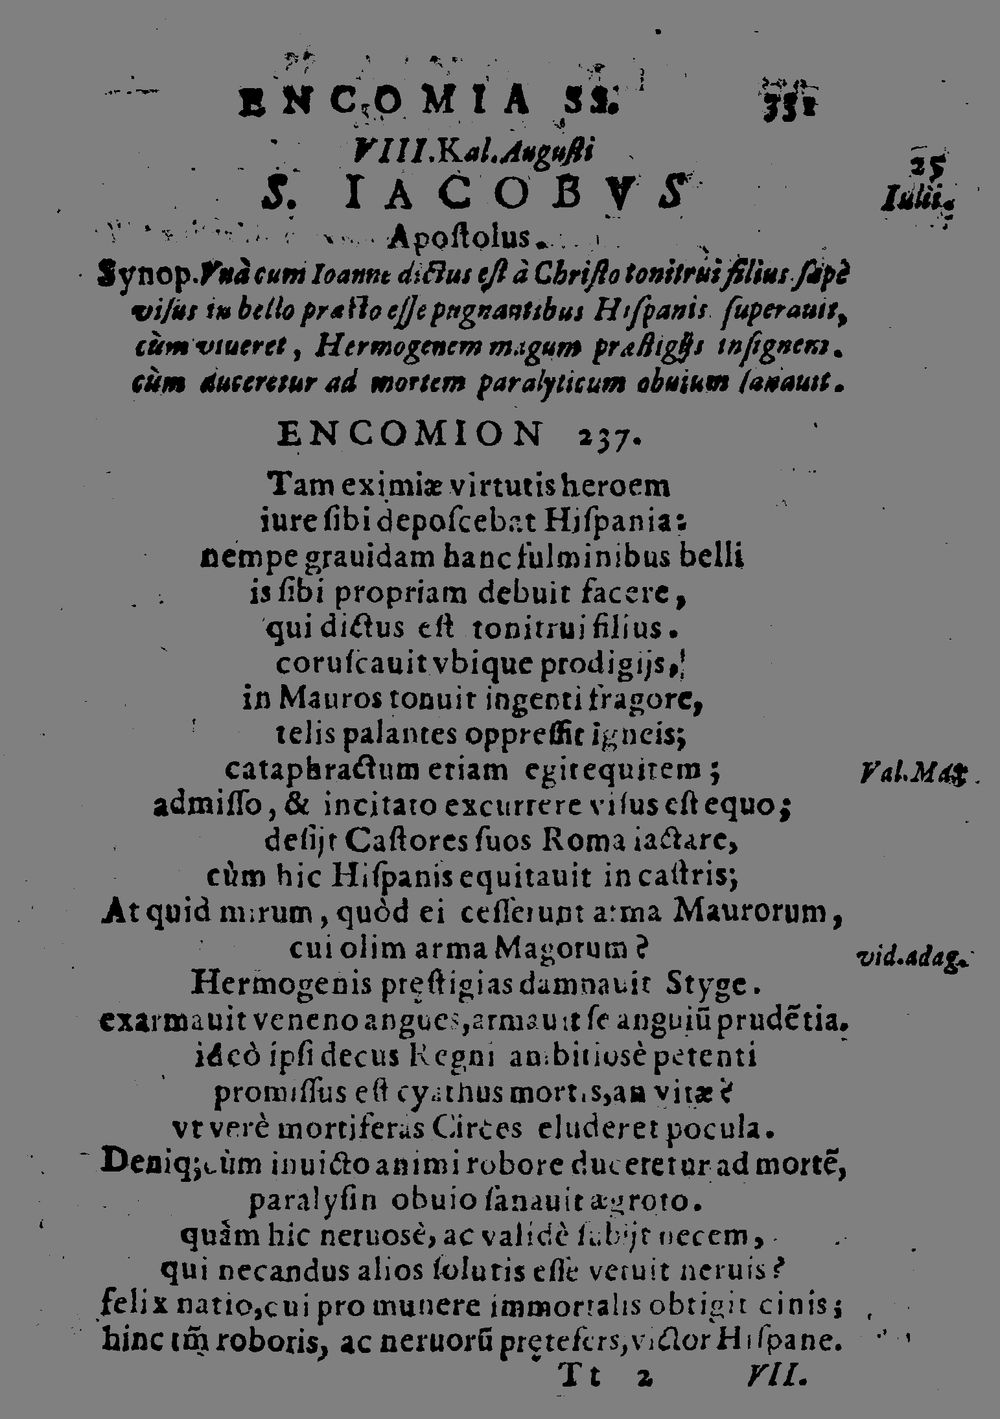 ENCOMIA SS. 331
VIII.Kal.Augusti
25
Iulii.
S. IACOBVS
Apostolus.
Synop. Vnà cum Ioanne dictus est à Christo tonitrui filius. sæpè
visus in bello præsto esse pugnantibus Hispanis superauit,
cùm viueret, Hermogenem magum præstigijs insignem.
cùm duceretur ad mortem paralyticum obuium sanauit.
ENCOMION 237.
Tam eximiæ virtutis heroem
iure sibi deposcebat Hispania:
nempe grauidam hanc fulminibus belli
is sibi propriam debuit facere,
qui dictus est tonitrui filius.
coruscauit vbique prodigijs,
in Mauros tonuit ingenti fragore,
telis palantes oppressit igneis;
cataphractum etiam egit equitem; Val.Max.
admisso, & incitato excurrere visus est equo;
desijt Castores suos Roma iactare,
cùm hic Hispanis equitauit in castris;
At quid mirum, quòd ei cesserunt arma Maurorum,
cui olim arma Magorum? vid.adag.
Hermogenis pręstigias damnauit Styge.
exarmauit veneno angues, armauit se anguiũ prudẽtia.
ideò ipsi decus Regni ambitiosè petenti
promissus est cyathus mortis, an vitæ?
vt verè mortiferas Circes eluderet pocula.
Deniq; cùm inuicto animi robore duceretur ad mortẽ,
paralysin obuio sanauit ægroto.
quàm hic neruosè, ac validè subijt necem,
qui necandus alios solutis esse vetuit neruis?
felix natio, cui pro munere immortalis obtigit cinis;
hinc tm̃ roboris, ac neruorũ pręfefers, victor Hispane.
Tt 2 VII.